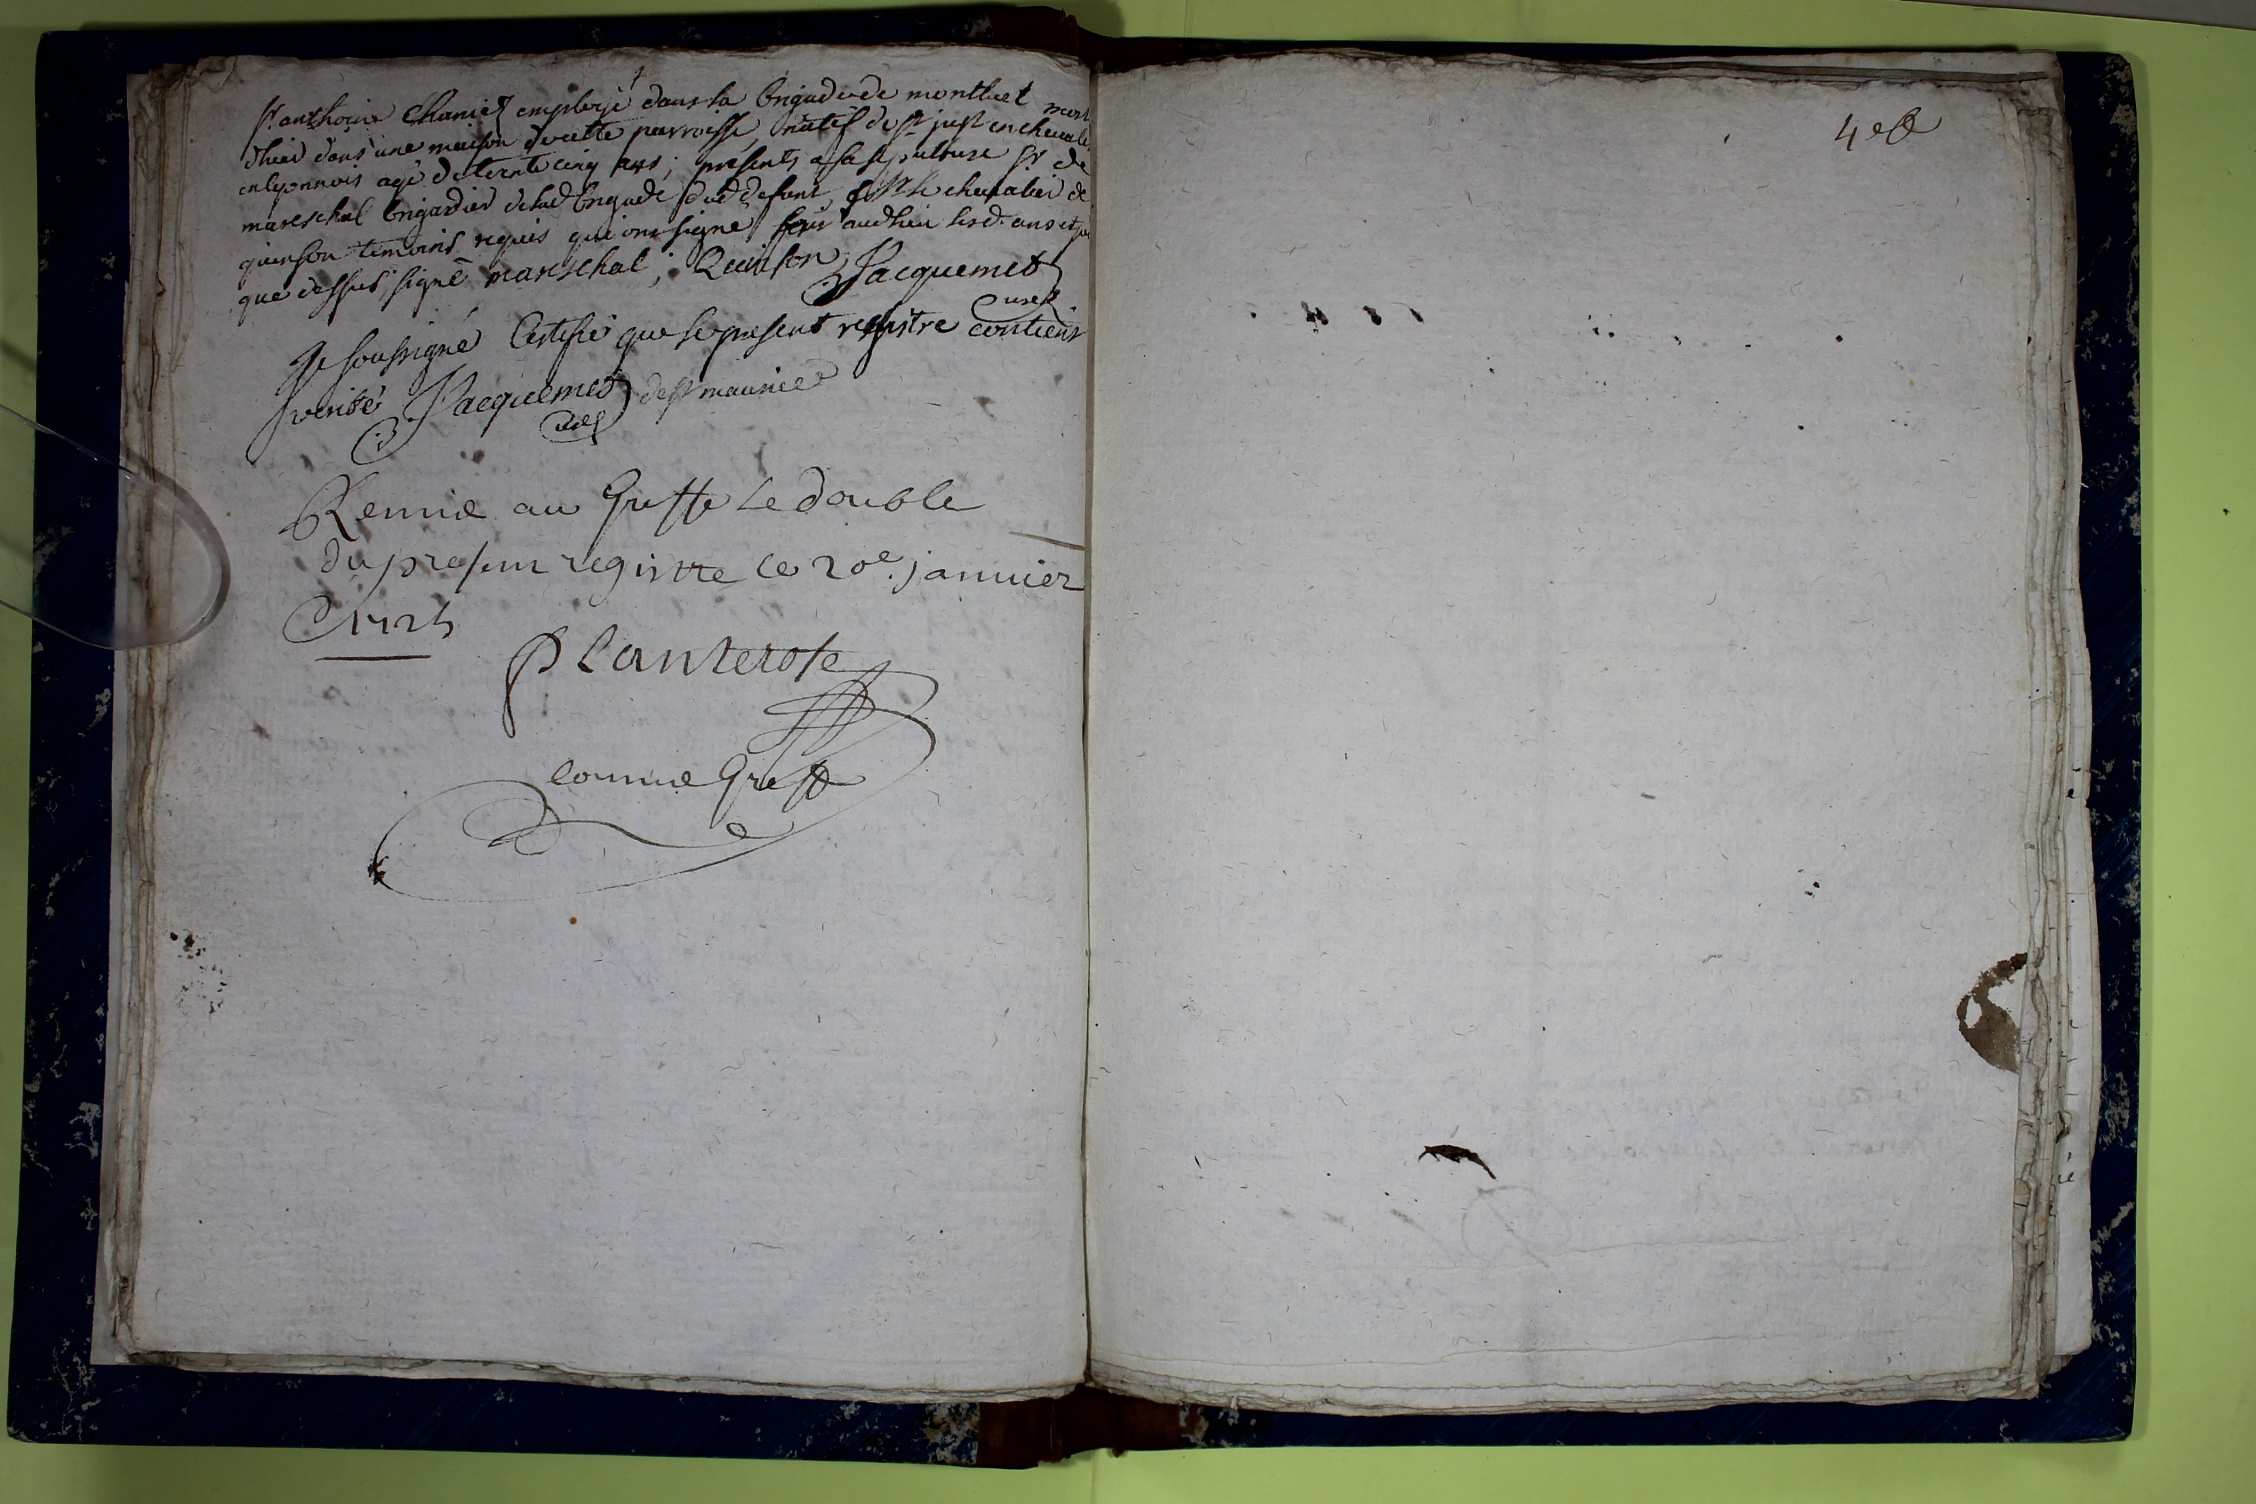 Sr anthoine Chaniez employé dans la brigade de montluel mort
d'hier dans une maison de cette parroisse, natif de st just en chevale
en lyonnois agé de trente cinq ans; presents a sa sepulture sr de
mareschal brigardier de lad brigade dud defunt, & Mr le chevalier de
quinson temoins requis qui ont signé au dlieu lesd. ans et jou
que dessus signé mareschal; Quinson Jacquemet
curé
Je soussigné Certifie que le present registre contient
verité Jacquemet de st maurice
curé
Remis au Greffe le double
du present registre le 20e. janvier
1725
Planterose
commis Greff
4 e